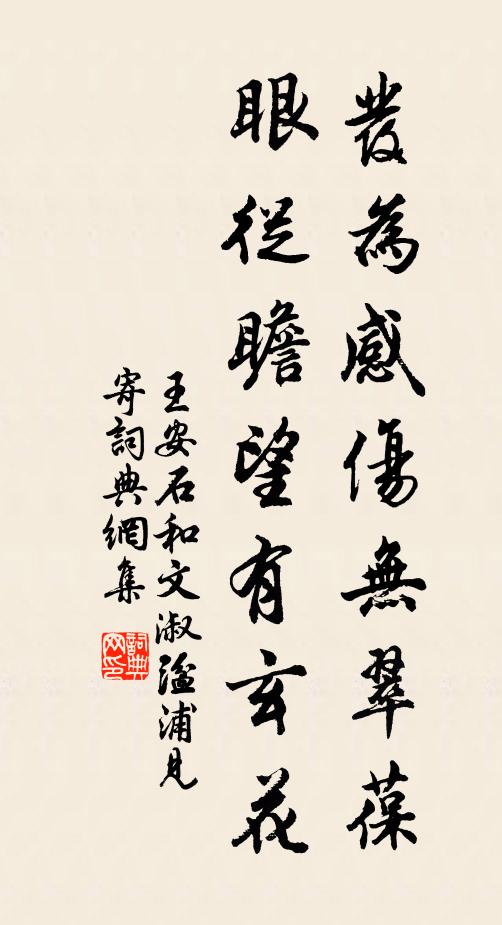 發為感傷無翠葆
眼從瞻望有玄花
王安石和文淑湓浦見
寄詞典網集
詞典网印